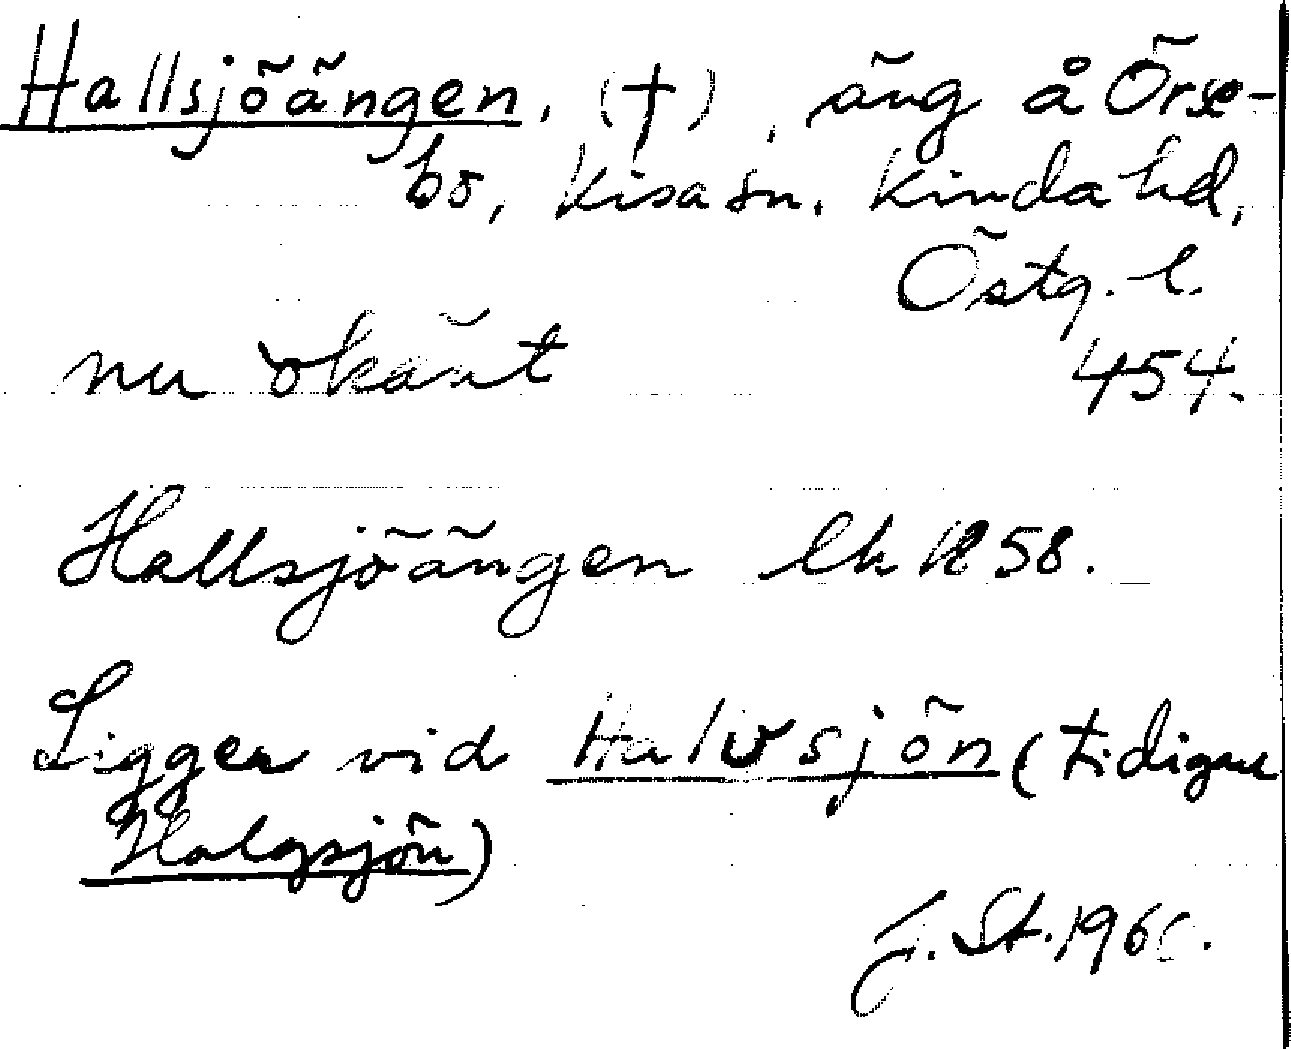 Hallsjöängen, (†), äng å Örse-
bo, Kisa sn. Kinda hd,
Östg. l.
nu okänt 454.
Hallsjöängen lk 1858.
Ligger vid Halvsjön (tidigare
Halgsjön)
J. St. 196